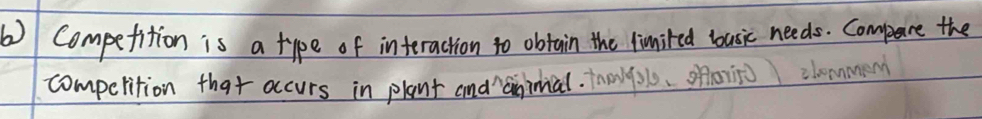 b) Competition is a type of interaction to obtain the limited basic needs. Compare the
competition that occurs in plant and animal.